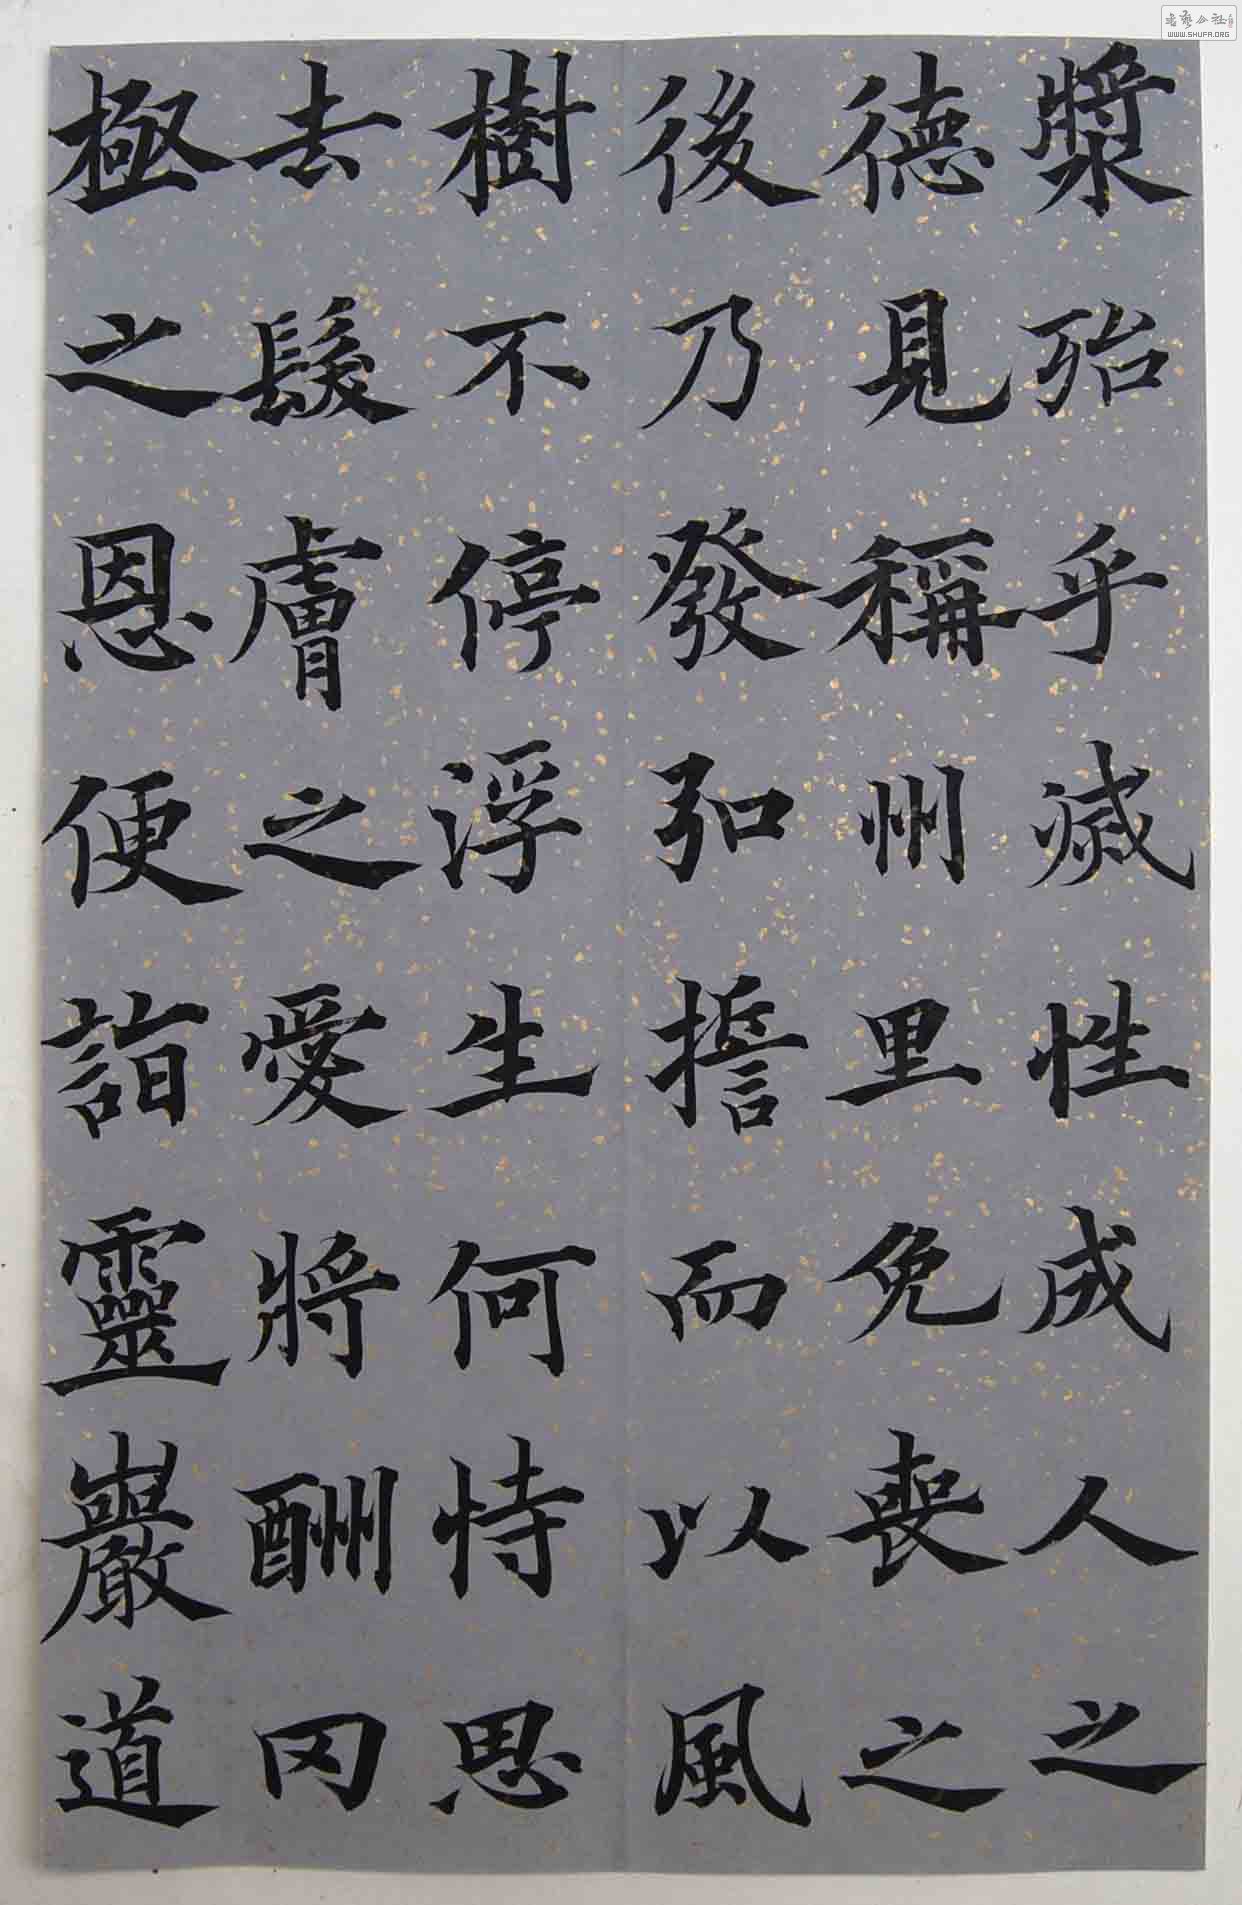 漿殆乎滅性成人之
德見稱州里免喪之
後乃發弘誓而以風
樹不停浮生何恃思
去髮膚之愛將酬罔
極之恩便詣靈巖道
WWW.SHUFA.ORG